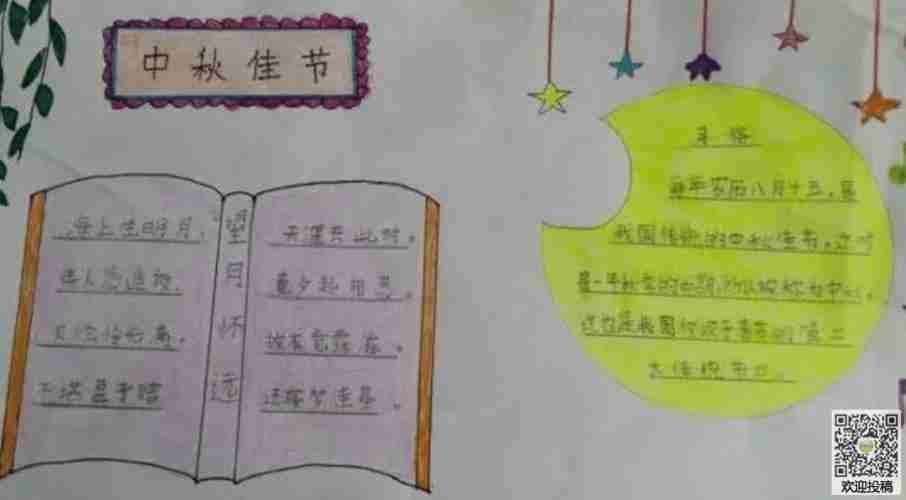 中秋佳节
望月怀远
海上生明月，
天涯共此时。
情人怨遥夜，
竟夕起相思。
灭烛怜光满，
披衣觉露滋。
不堪盈手赠
还寝梦佳期。
每年农历八月十五，是
我国传统的中秋佳节。这时
是一年秋季的中期，所以被称为中秋。
这也是我国仅次于春节的第二
大传统节日。
欢迎投稿